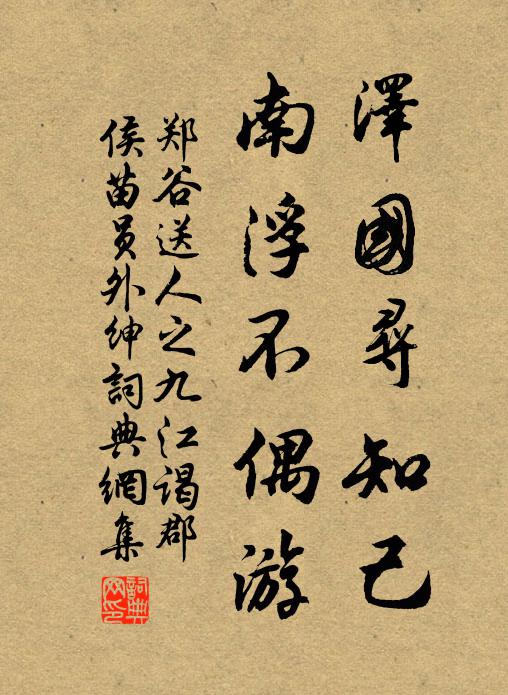 澤國尋知己
南浮不偶游
郑谷送人之九江谒郡
侯苗员外绅詞典網集
詞典網印